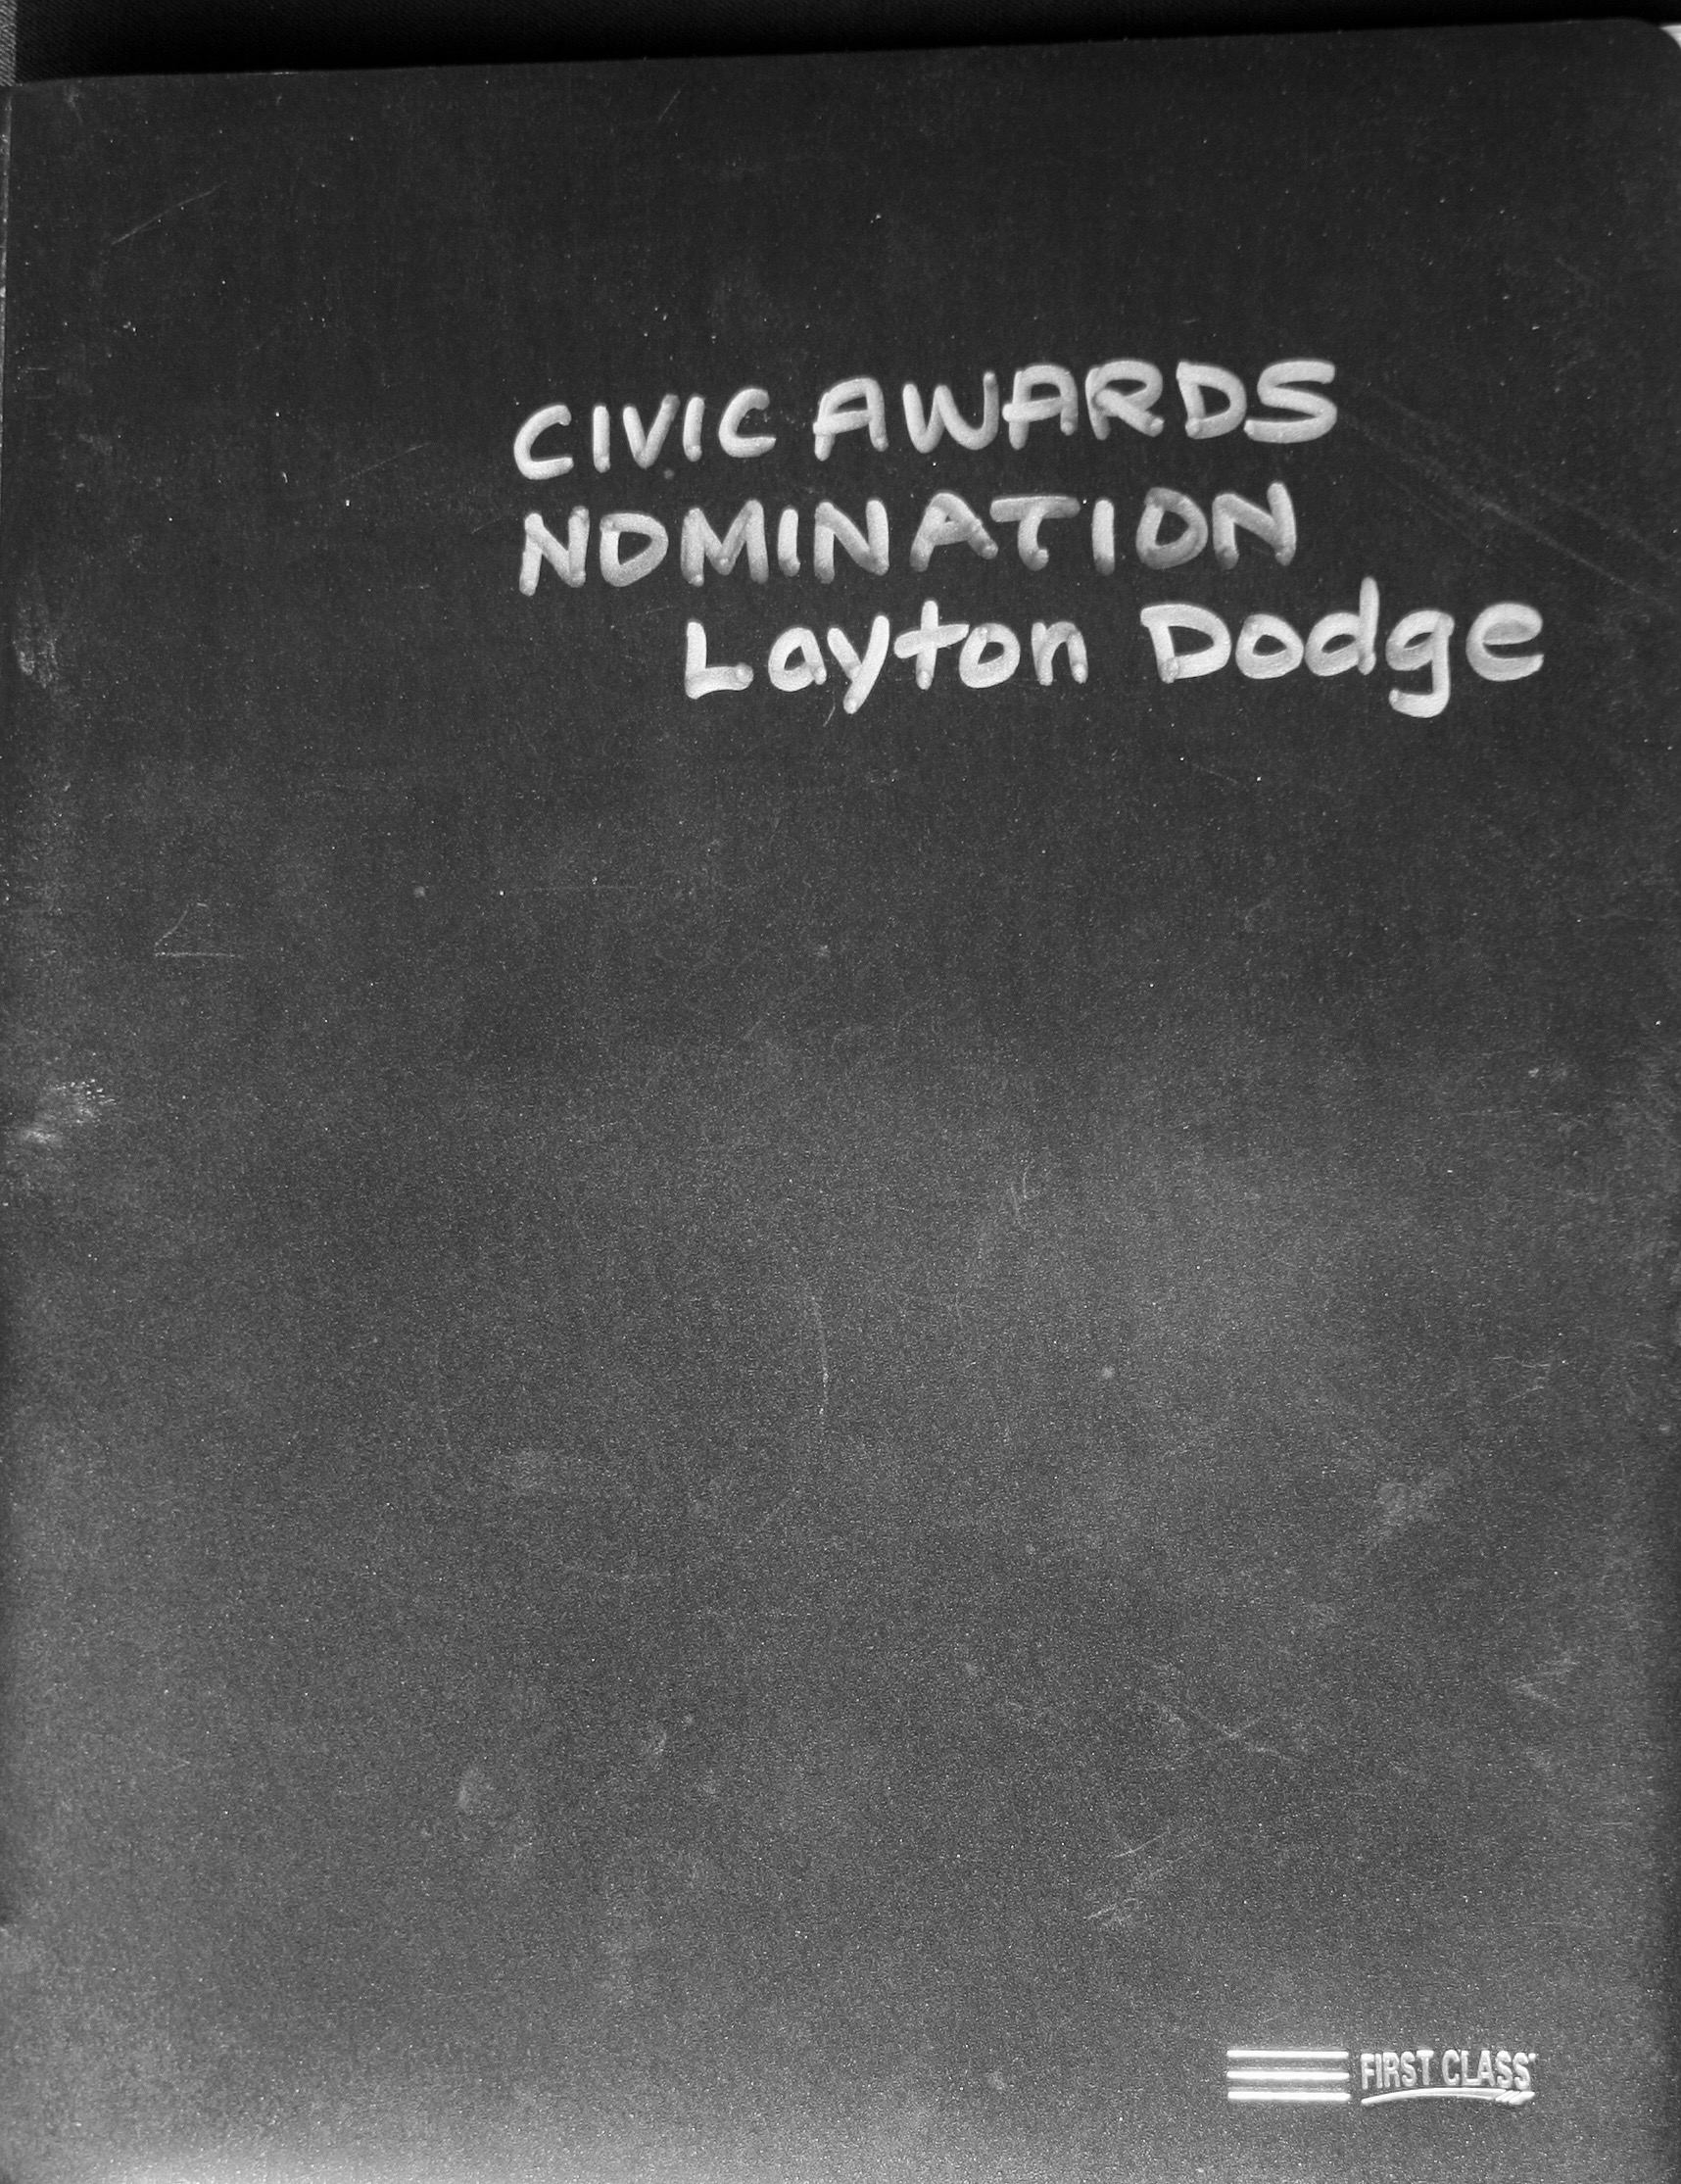 CIVIC AWARDS
NOMINATION
Layton Dodge
FIRST CLASS